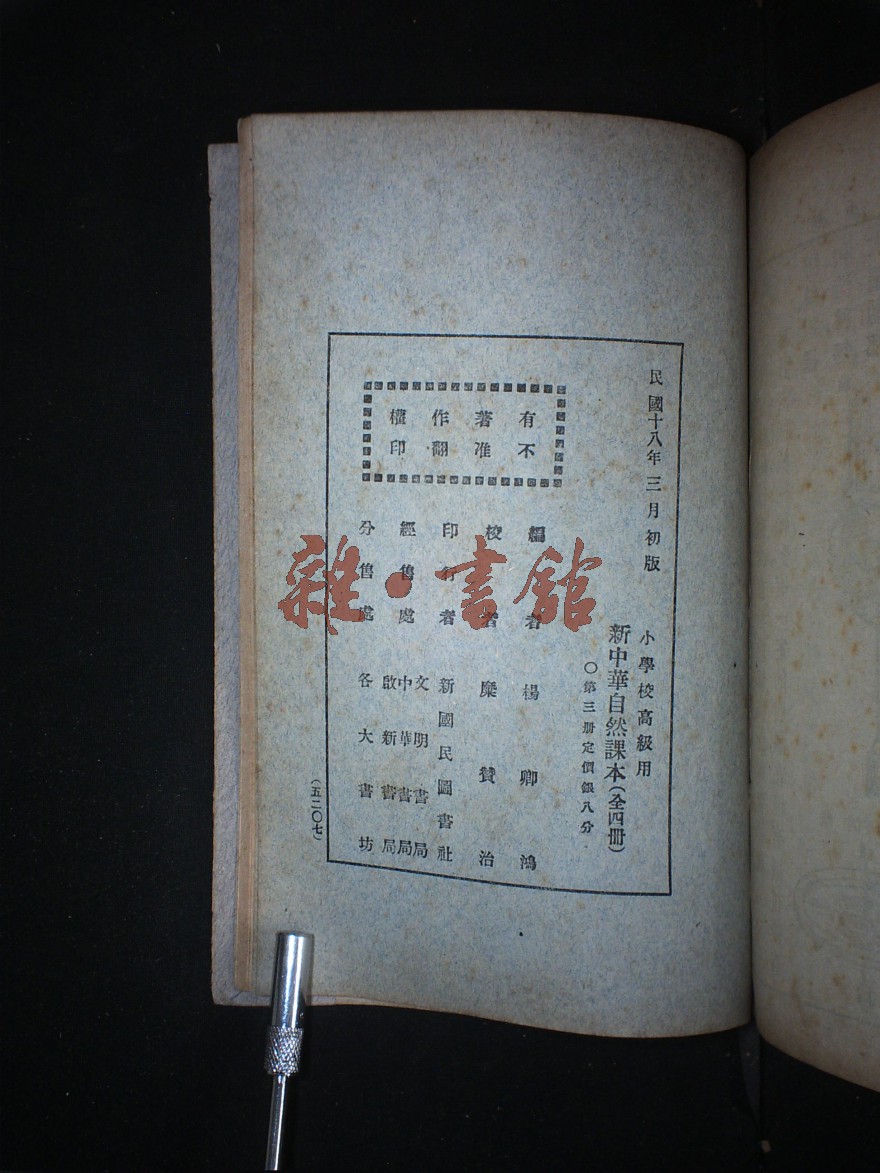 民國十八年三月初版
小學校高級用
新中華自然課本(全四冊)
○第三册定價銀八分
有著作權
不准翻印
編者 楊卿鴻
校者 糜贊治
印行者 新國民圖書社
經售處 文明書局
中華書局
啟新書局
分售處 各大書坊
(五二〇七)
雜·書館